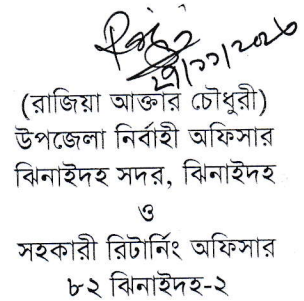 (রাজিয়া আক্তার চৌধুরী)
উপজেলা নির্বাহী অফিসার
ঝিনাইদহ সদর, ঝিনাইদহ
ও
সহকারী রিটার্নিং অফিসার
৮২ ঝিনাইদহ-২